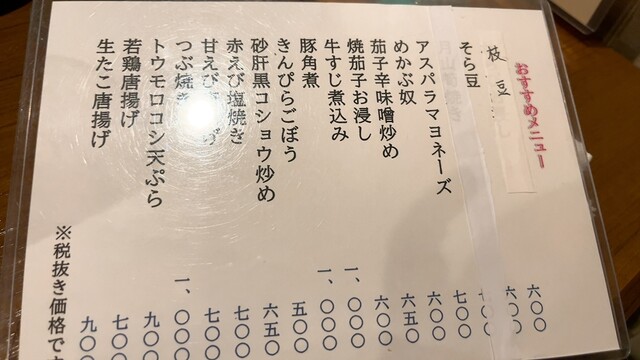 おすすめメニュー
六〇〇
枝豆 六〇〇
そら豆
アスパラマヨネーズ 七〇〇
めかぶ奴 六〇〇
茄子辛味噌炒め 六五〇
焼茄子お浸し 六〇〇
牛すじ煮込み 一、〇〇〇
豚角煮 一、〇〇〇
きんぴらごぼう 五〇〇
砂肝黒コショウ炒め 六五〇
赤えび塩焼き 七〇〇
甘えび げ 七〇〇
つぶ焼き 一、〇〇〇
トウモロコシ天ぷら 九〇〇
若鶏唐揚げ 七〇〇
生たこ唐揚げ 九〇〇
※税抜き価格で